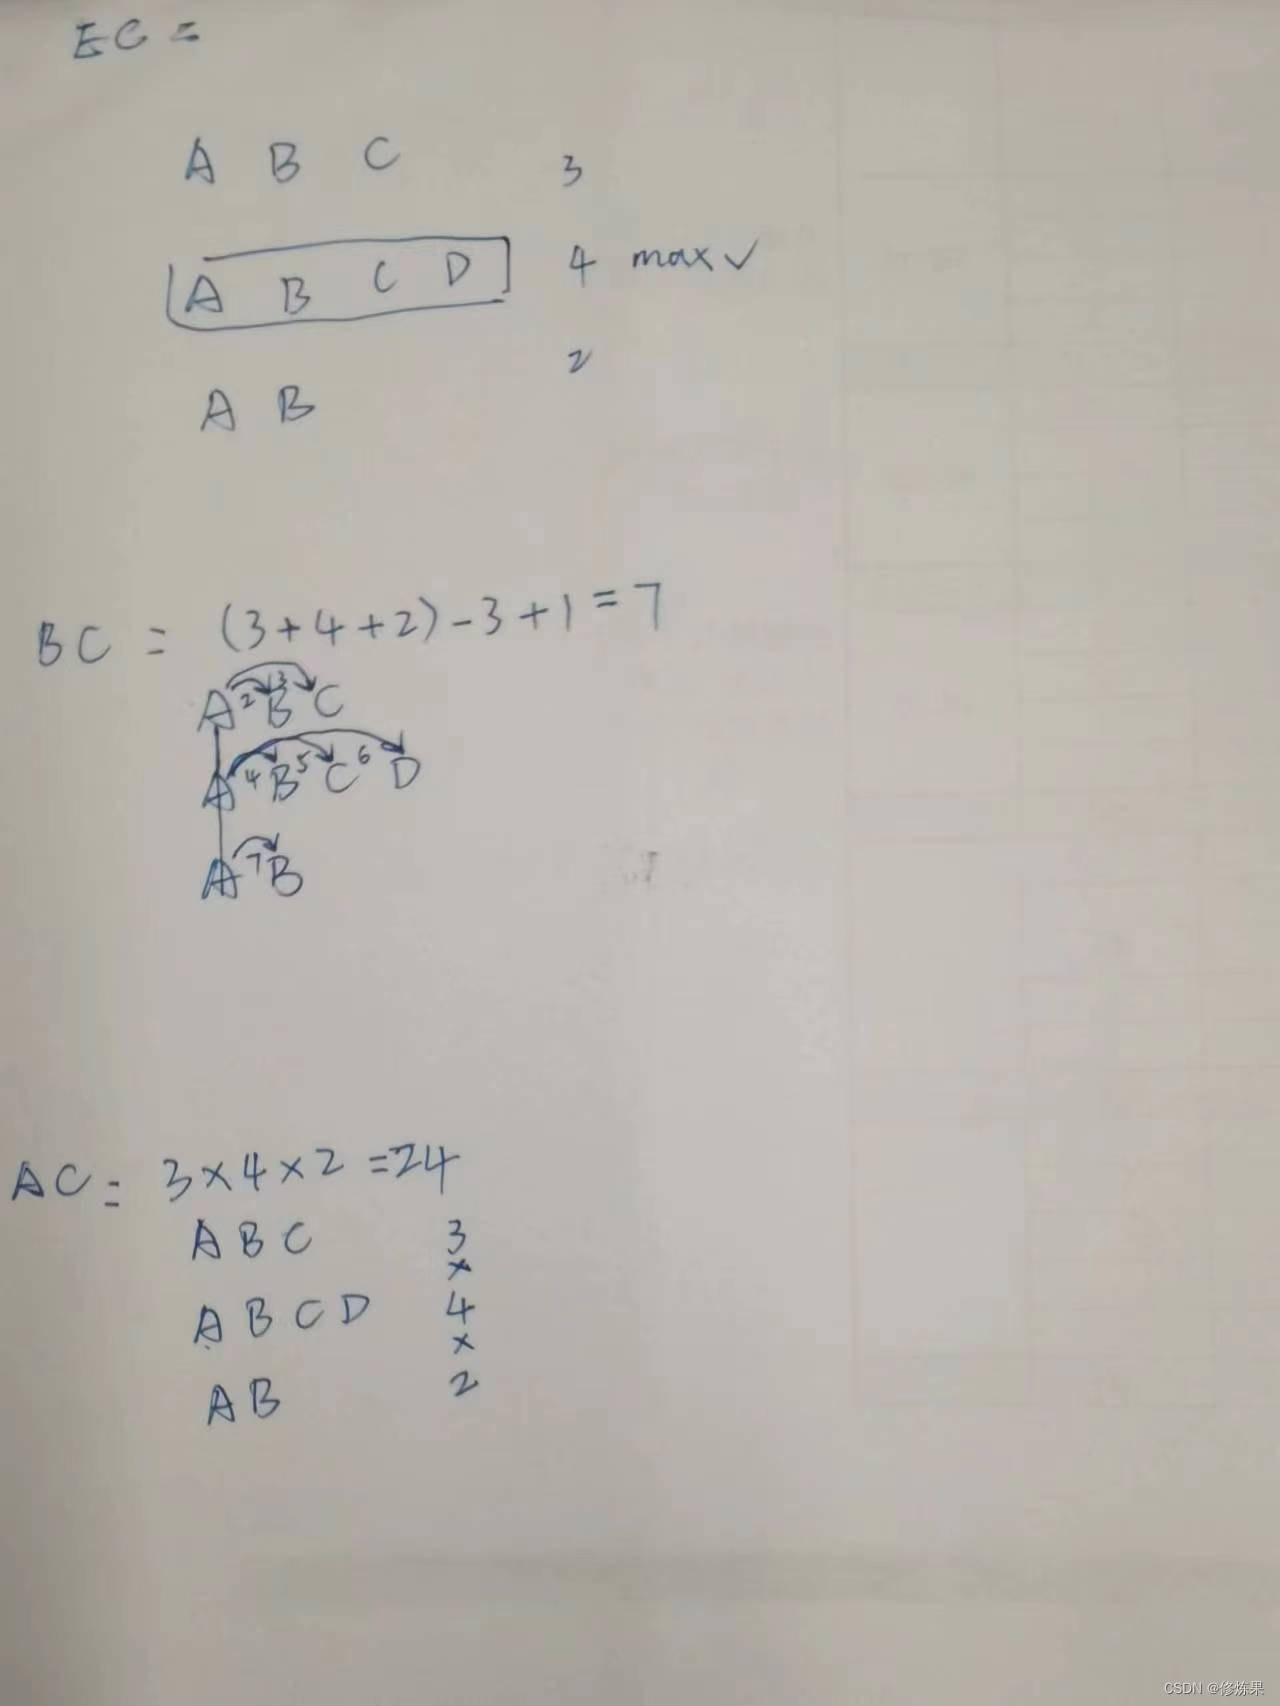 EC =
A B C 3
A B C D 4 max ✓
2
A B
BC = (3+4+2)-3+1=7
A 2 B 3 C
A 4 B 5 C 6 D
A 7 B
AC = 3×4×2=24
A B C 3
×
A B C D 4
×
A B 2
CSDN @修炼果